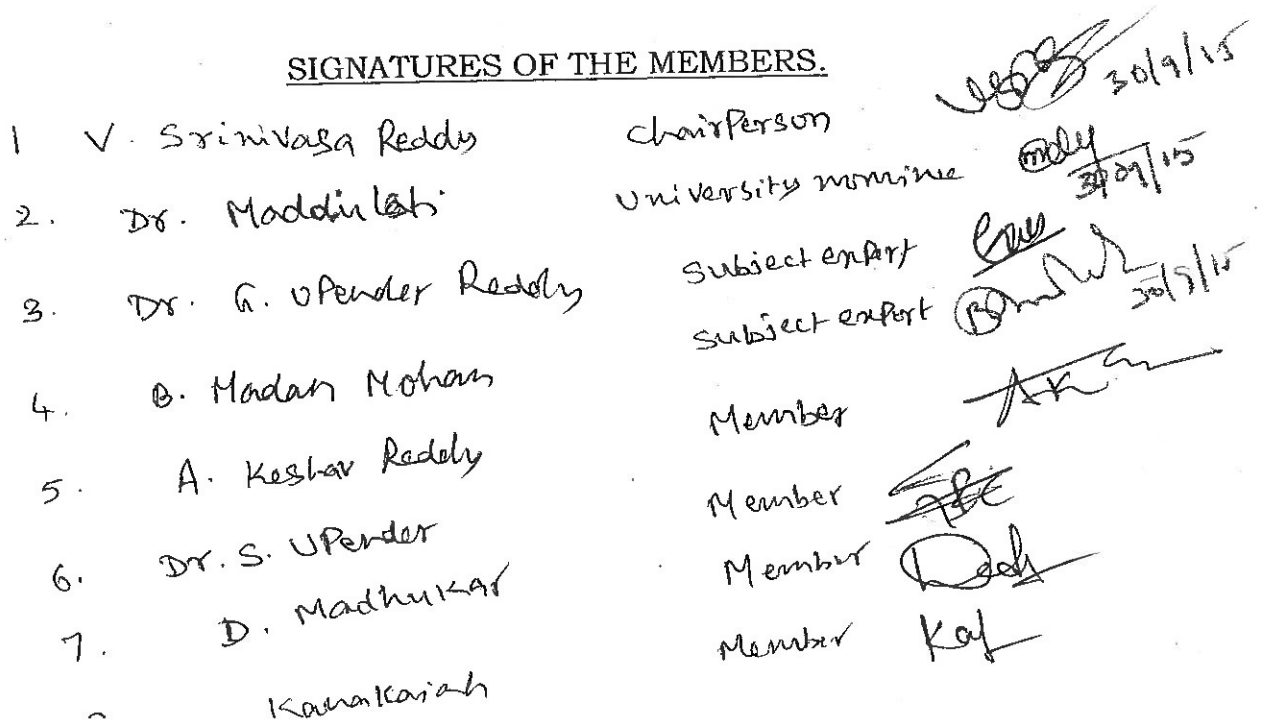 SIGNATURES OF THE MEMBERS.
1 V. Srinivasa Reddy Chairperson 30/9/15
2. Dr. Maddileti University nominee 30/09/15
3. Dr. G. Upender Reddy Subject expert
4. B. Madan Mohan Subject expert 30/9/15
5. A. Keshav Reddy Member
6. Dr. S. Upender Member
7. D. Madhukar Member
Kanakaiah Member